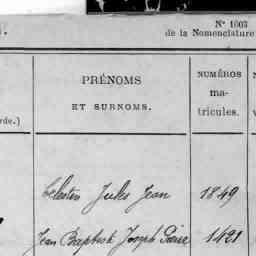 N° 1003
de la Nomenclature
PRÉNOMS
ET SURNOMS.
NUMÉROS
ma-
tricules.
rde.)
Celestin Jules Jean 1849
Jean Baptiste Joseph Pierre 1491